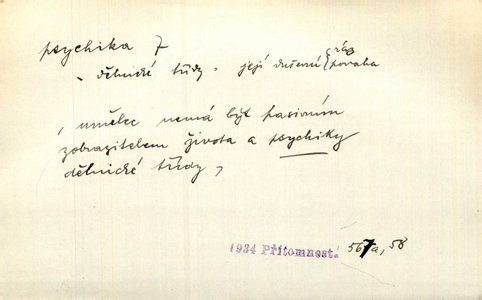 psychika 7
„ dělnické třídy „ její duševní { ráz
povaha
, umělec nemá být pasivním
zobrazitelem života a psychiky
dělnické třídy ,
1934 Přítomnost. 567a, 58